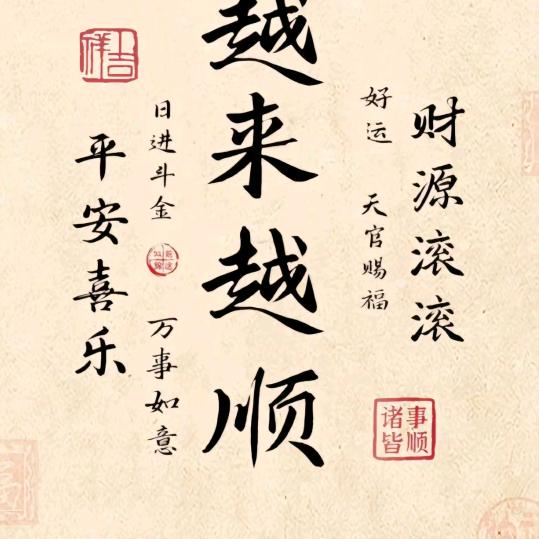 财源滚滚
好运 天官赐福
诸事皆顺
越来越顺
日进斗金 万事如意
平安喜乐
吉祥